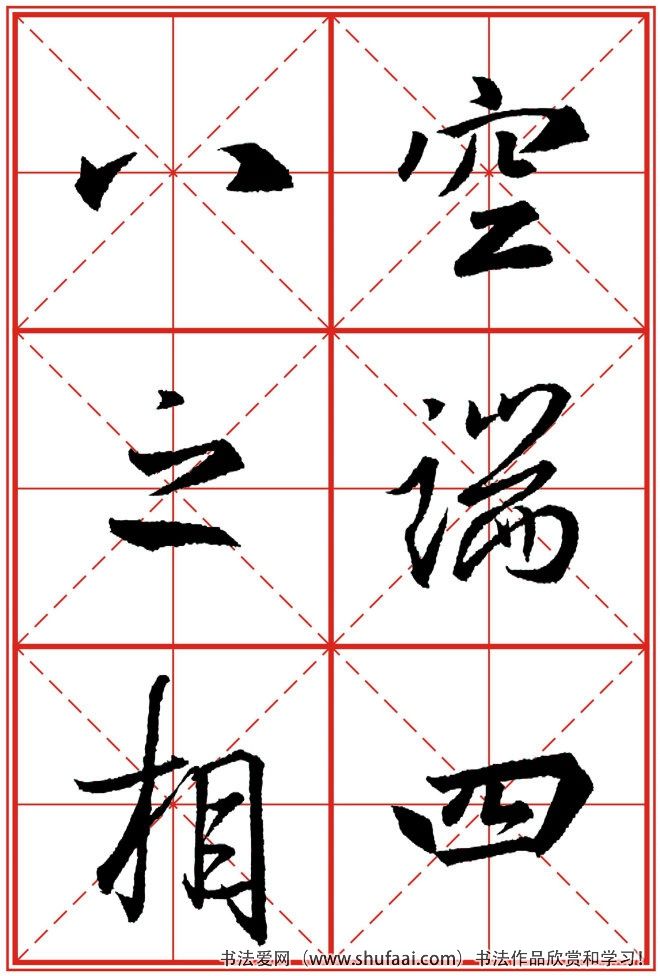 空端四
八之相
书法爱网（www.shufaai.com）书法作品欣赏和学习！